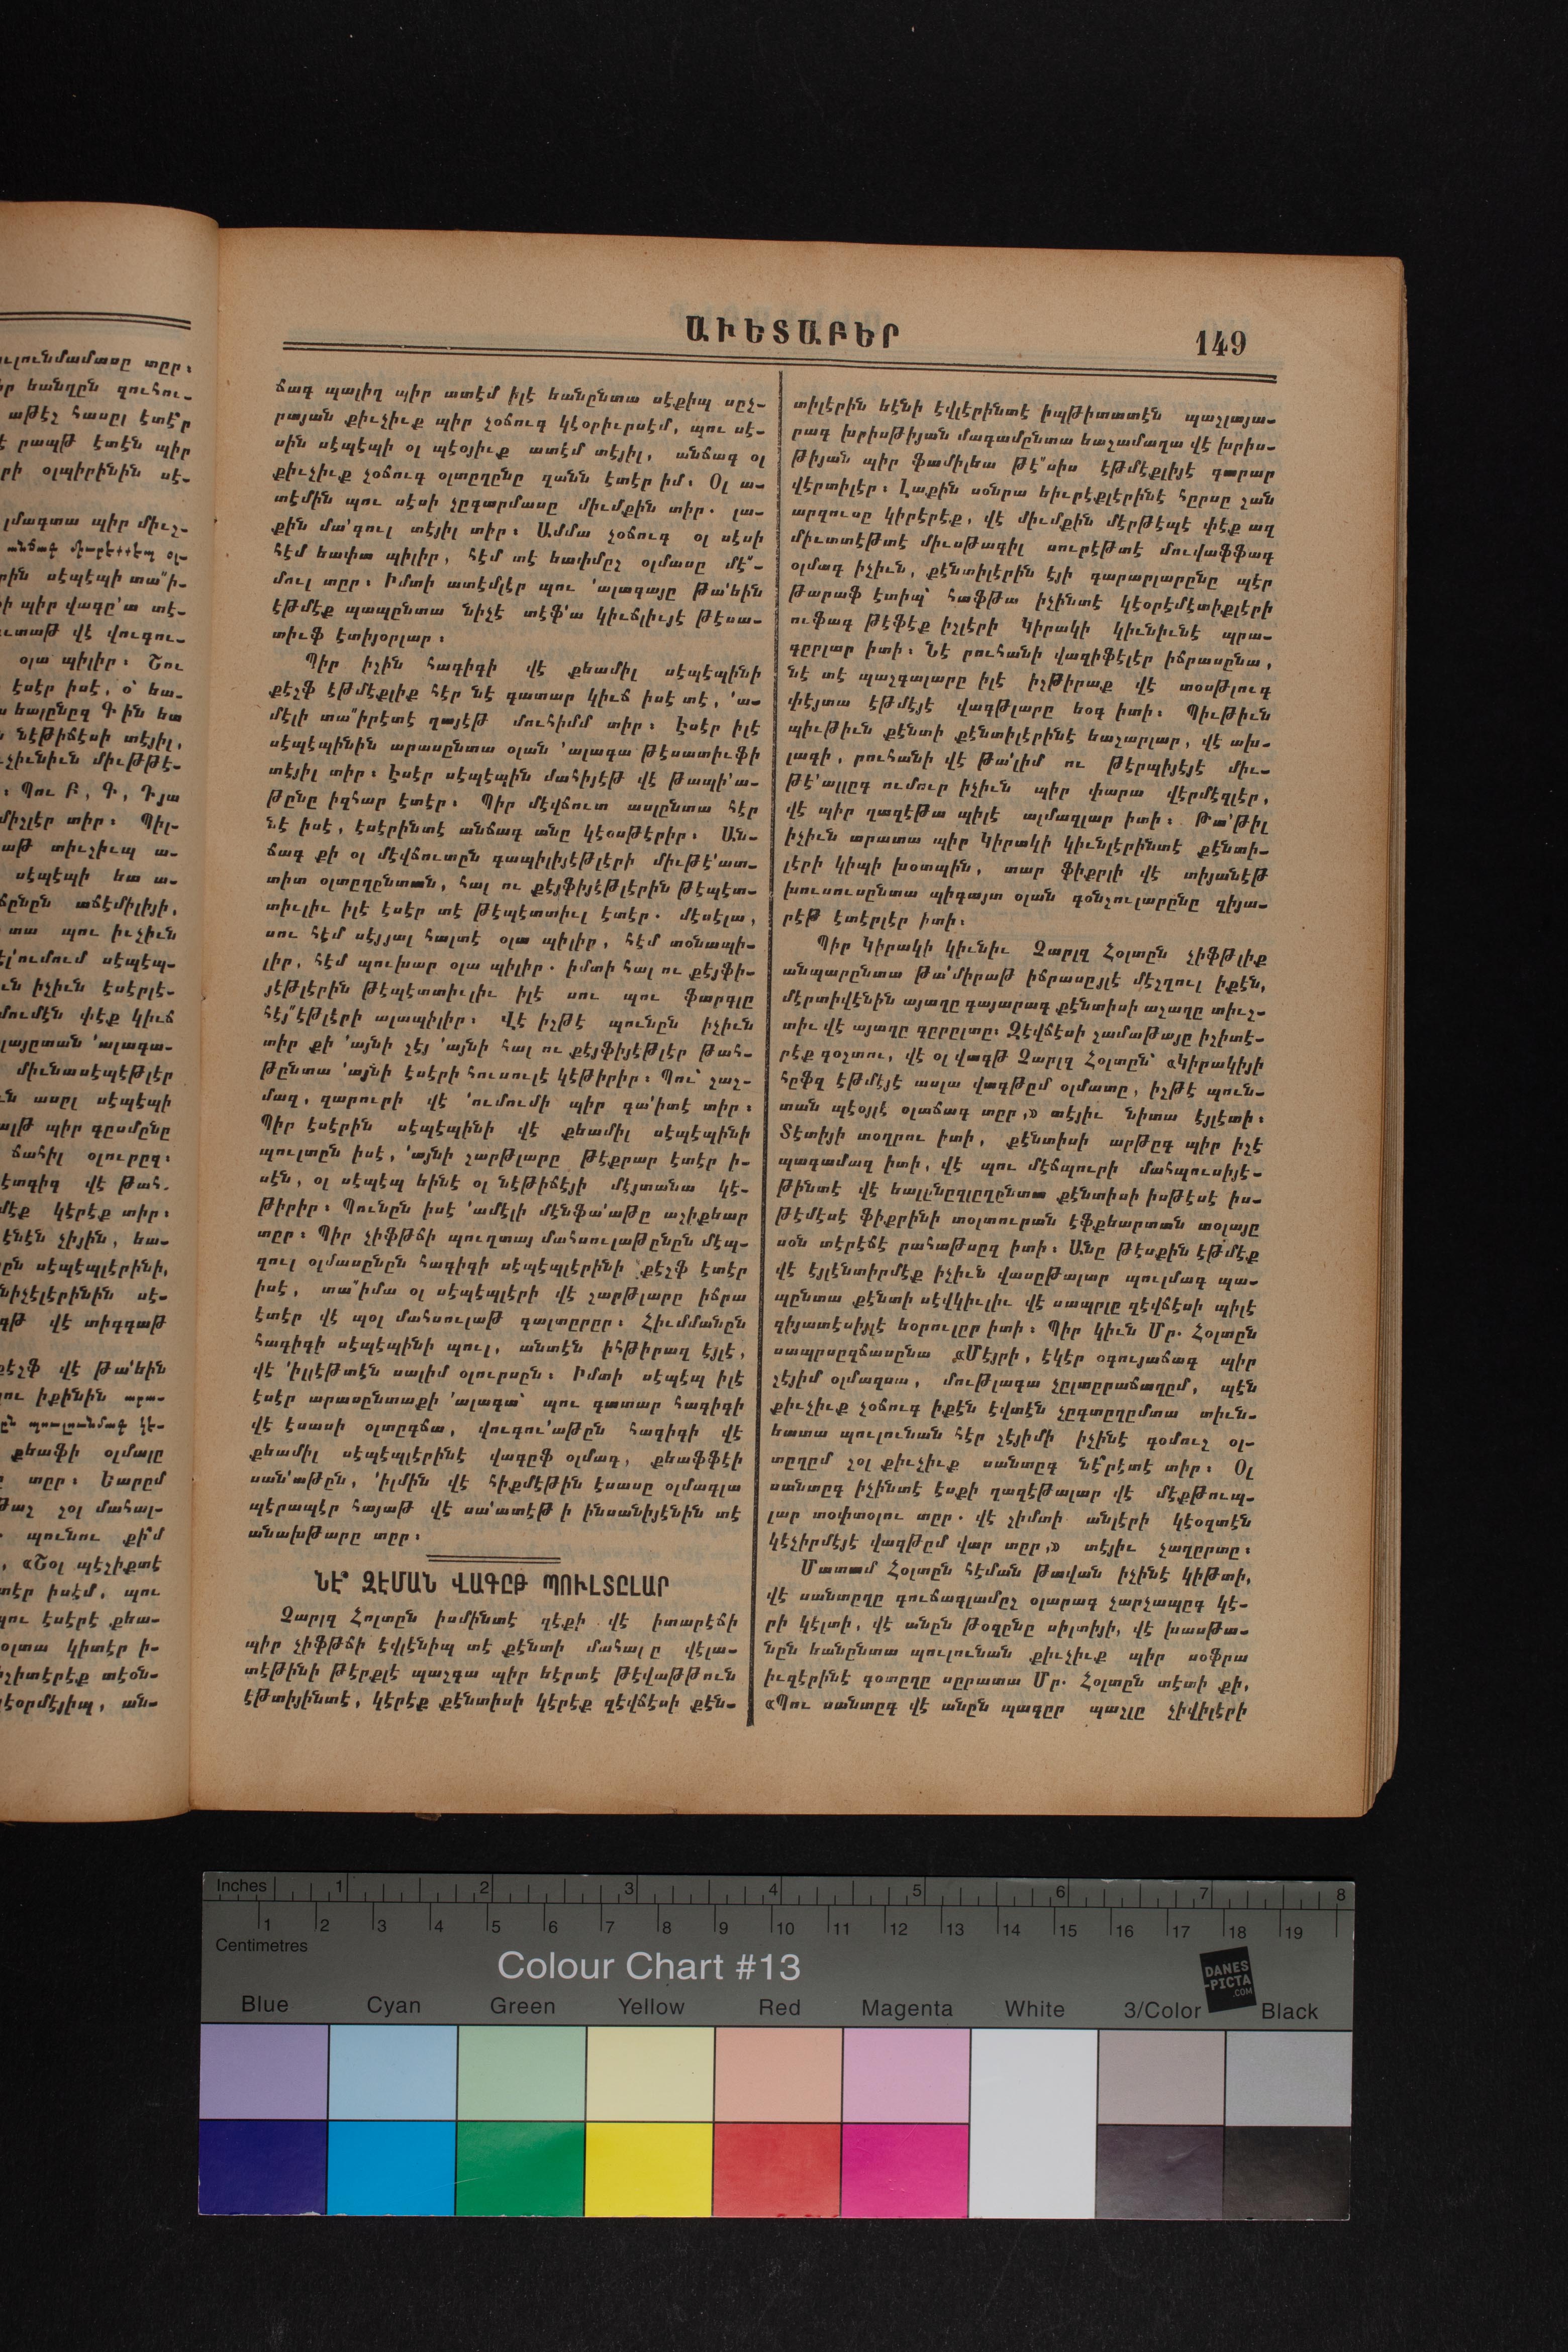 ԱՒԵՏԱԲԵՐ
149
ճագ պալիղ պիր ատէմ իլէ եանընտա սէքիպ սըչ-
րայան քիւչիւք պիր չօճուգ կէօրիւրսէմ, պու սէ-
սին սէպէպի օլ պէօյիւք ատէմ տէյիլ, անճագ օլ
քիւչիւք չօճուգ օլտըղընը զանն էտէր իմ։ Օլ ա-
տէմին պու սէսի չըգարմասը միւմքին տիր. լա-
քին մա՛գուլ տէյիլ տիր։ Ամմա չօճուգ օլ սէսի
հէմ եափա պիլիր, հէմ տէ եափմըշ օլմասը մէ՛-
մուլ տըր։ Իմտի ատէմլէր պու ՚ալագայը թա՛եին
էթմէք պապընտա նիչէ տէֆ՛ա կիւճլիւյէ թէսա-
տիւֆ էտիյօրլար։
Պիր իչին հագիգի վէ քեամիլ սէպէպինի
քէշֆ էթմէքլիք հէր նէ գատար կիւճ իսէ տէ, ՚ա-
մէլի տա՛իրէտէ ղայէթ մուհիմմ տիր։ Էսէր իլէ
սէպէպինին արասընտա օլան ՚ալագա թէսատիւֆի
տէյիլ տիր։ Էսէր սէպէպին մահիյէթ վէ թապի՛ա-
թընը իզհար էտէր։ Պիր մէվճուտ ասլընտա հէր
նէ իսէ, էսէրինտէ անճագ անը կէօսթէրիր։ Ան-
ճագ քի օլ մէվճուտըն գապիլիյէթլէրի միւթէ՛ատ-
տիտ օլտըղընտան, հալ ու քէյֆիյէթլէրին թէպէտ-
տիւլիւ իլէ էսէր տէ թէպէտտիւլ էտէր. մէսէլա,
սու հէմ սէյյալ հալտէ օլա պիլիր, հէմ տօնապի-
լիր, հէմ պուխար օլա պիլիր. իմտի հալ ու քէյֆի-
յէթլէրին թէպէտտիւլիւ իլէ սու պու ֆարգլը
հէյ՛էթլէրի ալապիլիր։ Վէ իշթէ պունըն իչիւն
տիր քի ՚այնի շէյ ՚այնի հալ ու քէյֆիյէթլէր թահ-
թընտա ՚այնի էսէրի հուսուլէ կէթիրիր։ Պու՝ շաշ-
մազ, զարուրի վէ ՚ումումի պիր գա՛իտէ տիր։
Պիր էսէրին սէպէպինի վէ քեամիլ սէպէպինի
պուլտըն իսէ, ՚այնի շարթլարը թէքրար էտէր ի-
սէն, օլ սէպէպ եինէ օլ նէթիճէյի մէյտանա կէ-
թիրիր։ Պունըն իսէ ՚ամէլի մէնֆա՛աթը աշիքեար
տըր։ Պիր չիֆթճի պուղտայ մահսուլաթընըն մէպ-
զուլ օլմասընըն հագիգի սէպէպլէրինի քէշֆ էտէր
իսէ, տա՛իմա օլ սէպէպլէրի վէ շարթլարը իճրա
էտէր վէ պօլ մահսուլաթ գալտըրըր։ Հիւմմանըն
հագիգի սէպէպինի պուլ, անտէն իհթիրազ էյլէ,
վէ ՚իլլէթտէն սալիմ օլուրսըն։ Իմտի սէպէպ իլէ
էսէր արասընտաքի ՚ալագա՝ պու գատար հագիգի
վէ էսասի օլտըգճա, վուգու՛աթըն հագիգի վէ
քեամիլ սէպէպլէրինէ վագըֆ օլմագ, քեաֆֆէի
սան՛աթըն, ՚իլմին վէ հիքմէթին էսասը օլմագլա
պէրապէր հայաթ վէ սա՛ատէթ ի ինսանիյէնին տէ
անախթարը տըր։
ՆԷ՞ ԶԷՄԱՆ ՎԱԳԸԹ ՊՈՒԼՏԸԼԱՐ
Չարլզ Հոլտըն իսմինտէ զէքի վէ իտարէճի
պիր չիֆթճի էվլէնիպ տէ քէնտի մահալ ը վէլա-
տէթինի թէրքլէ պաշգա պիր եէրտէ թէվաթթուն
էթտիյինտէ, կէրէք քէնտիսի կէրէք զէվճէսի քէն-
տիլէրին եէնի էվլէրինտէ իպթիտատէն պաշլայա-
րագ խրիսթիյան մագամընտա եաշամաղա վէ խրիս-
թիյան պիր ֆամիլեա թէ՛սիս էթմէքլիյէ գարար
վէրտիլէր։ Լաքին սօնրա եիւրէքլէրինէ հըրսը շան
արզուսը կիրէրէք, վէ միւմքին մէրթէպէ փէք ազ
միւտտէթտէ միւսթագիլ սուրէթտէ մուվաֆֆագ
օլմագ իչիւն, քէնտիլէրին էյի գարարլարընը պէր
թարաֆ էտիպ՝ հաֆթա իչինտէ կէօրէմէտիքլէրի
ուֆագ թէֆէք իշլէրի Կիրակի կիւնիւնէ պրա-
գըրլար իտի։ Նէ րուհանի վազիֆէլէր իճրասընա,
նէ տէ պաշգալարը իլէ իշթիրաք վէ տօսթլուգ
փէյտա էթմէյէ վագթլարը եօգ իտի։ Պիւթիւն
պիւթիւն քէնտի քէնտիլէրինէ եաշարլար, վէ ախ-
լագի, րուհանի վէ թա՛լիմ ու թէրպիյէյէ միւ-
թէ՛ալլըգ ումուր իչիւն պիր փարա վէրմէզլէր,
վէ պիր ղազէթա պիլէ ալմազլար իտի։ Թա՛թիլ
իչիւն արատա պիր Կիրակի կիւնլէրինտէ քէնտի-
լէրի կիպի խօտպին, տար ֆիքրլի վէ տիյանէթ
խուսուսընտա պիգայտ օլան գօնշուլարընը զիյա-
րէթ էտէրլէր իտի։
Պիր Կիրակի կիւնիւ Չարլզ Հօլտըն չիֆթլիք
անպարընտա թա՛միրաթ իճրասըյլէ մէշղուլ իքէն,
մէրտիվէնին այաղը գայարագ քէնտիսի աշաղը տիւշ-
տիւ վէ այաղը գըրըլտը։ Զէվճէսի շամաթայը իշիտէ-
րէք գօշտու, վէ օլ վագթ Չարլզ Հօլտըն՝ «Կիրակիյի
հըֆզ էթմէյէ ասլա վագթըմ օլմատը, իշթէ պուն-
տան պէօյլէ օլաճագ տըր,» տէյիւ նիտա էյլէտի։
Տէտիյի տօղրու իտի, քէնտիսի արթըգ պիր իշէ
պագամազ իտի, վէ պու մէճպուրի մահպուսիյէ-
թինտէ վէ եալընըզլըղընտա քէնտիսի իսթէսէ իս-
թէմէսէ ֆիքրինի տօլտուրան էֆքեարտան տօլայը
սօն տէրէճէ րահաթսըզ իտի։ Անը թէսքին էթմէք
վէ էյլէնտիրմէք իչիւն վասըթալար պուլմագ պա-
պընտա քէնտի սէվկիւլիւ վէ սապրլը զէվճէսի պիլէ
զիյատէսիյլէ եօրուլըր իտի։ Պիր կիւն Մր. Հօլտըն
սապրսըզճասընա «Մէյրի, էկէր օգույաճագ պիր
շէյիմ օլմազսա, մութլագա չըլտըրաճաղըմ, պէն
քիւչիւք չօճուգ իքէն էվտէն չըգտըղըմտա տիւն-
եատա պուլունան հէր շէյիմի իչինէ գօմուշ օլ-
տըղըմ շօլ քիւչիւք սանտըգ նէ՞րէտէ տիր։ Օլ
սանտըգ իչինտէ էսքի ղազէթալար վէ մէքթուպ-
լար տօփտօլու տըր. վէ շիմտի անլէրի կէօզտէն
կէչիրմէյէ վագթըմ վար տըր,» տէյիւ չաղըրտը։
Մատամ Հօլտըն հէման թավան իչինէ կիթտի,
վէ սանտըղը գուճագլամըշ օլարագ չարչապըգ կէ-
րի կէլտի, վէ անըն թօզընը սիլտիյի, վէ խասթա-
նըն եանընտա պուլունան քիւչիւք պիր սօֆրա
իւզէրինէ գօտըղը սըրատա Մր. Հօլտըն տէտի քի,
«Պու սանտըգ վէ անըն պագըր պաշլը չիվիլէրի
Inches 1 2 3 4 5 6 7 8
1 2 3 4 5 6 7 8 9 10 11 12 13 14 15 16 17 18 19
Centimetres
Colour Chart #13
DANES
-PICTA
.COM
Blue Cyan Green Yellow Red Magenta White 3/Color Black